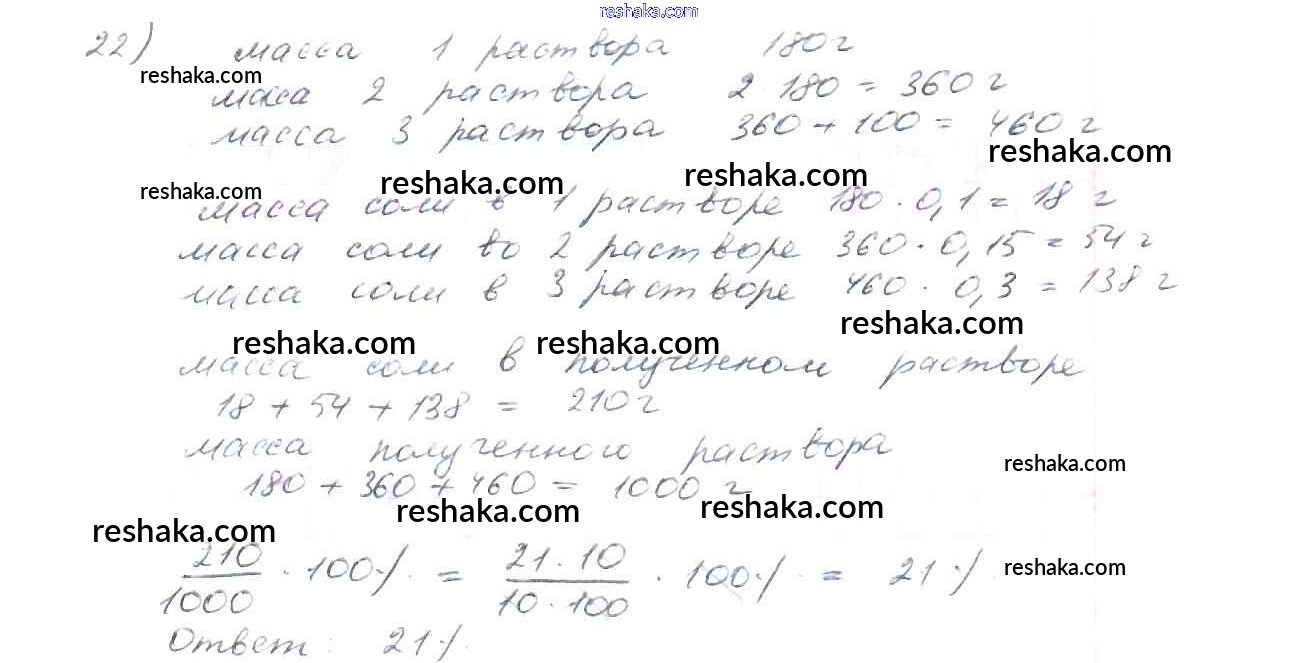 reshaka.com
22) масса 1 раствора 180 г
reshaka.com
маса 2 раствора 2 · 180 = 360 г
масса 3 раствора 360 + 100 = 460 г
reshaka.com
reshaka.com reshaka.com reshaka.com
масса соли в 1 растворе 180 · 0,1 = 18 г
масса соли во 2 растворе 360 · 0,15 = 54 г
масса соли в 3 растворе 460 · 0,3 = 138 г
reshaka.com reshaka.com reshaka.com
масса соли в полученном растворе
18 + 54 + 138 = 210 г
масса полученного раствора
reshaka.com
180 + 360 + 460 = 1000 г
reshaka.com reshaka.com reshaka.com
210/1000 · 100% = 21 · 10/10 · 100 · 100% = 21%
reshaka.com
Ответ: 21%.